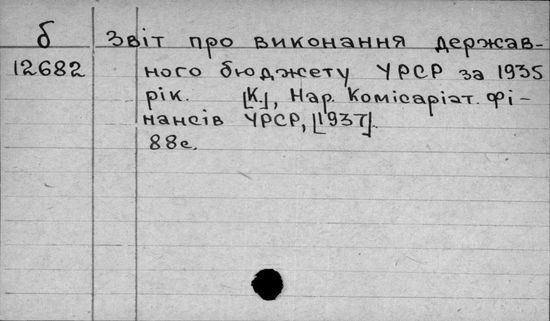 б
12682
Звіт про виконання держав-
ного бюджету УРСР за 1935
рік. [К.], Нар. Комісаріат. фі-
нансів УРСР, [1937].
88с.